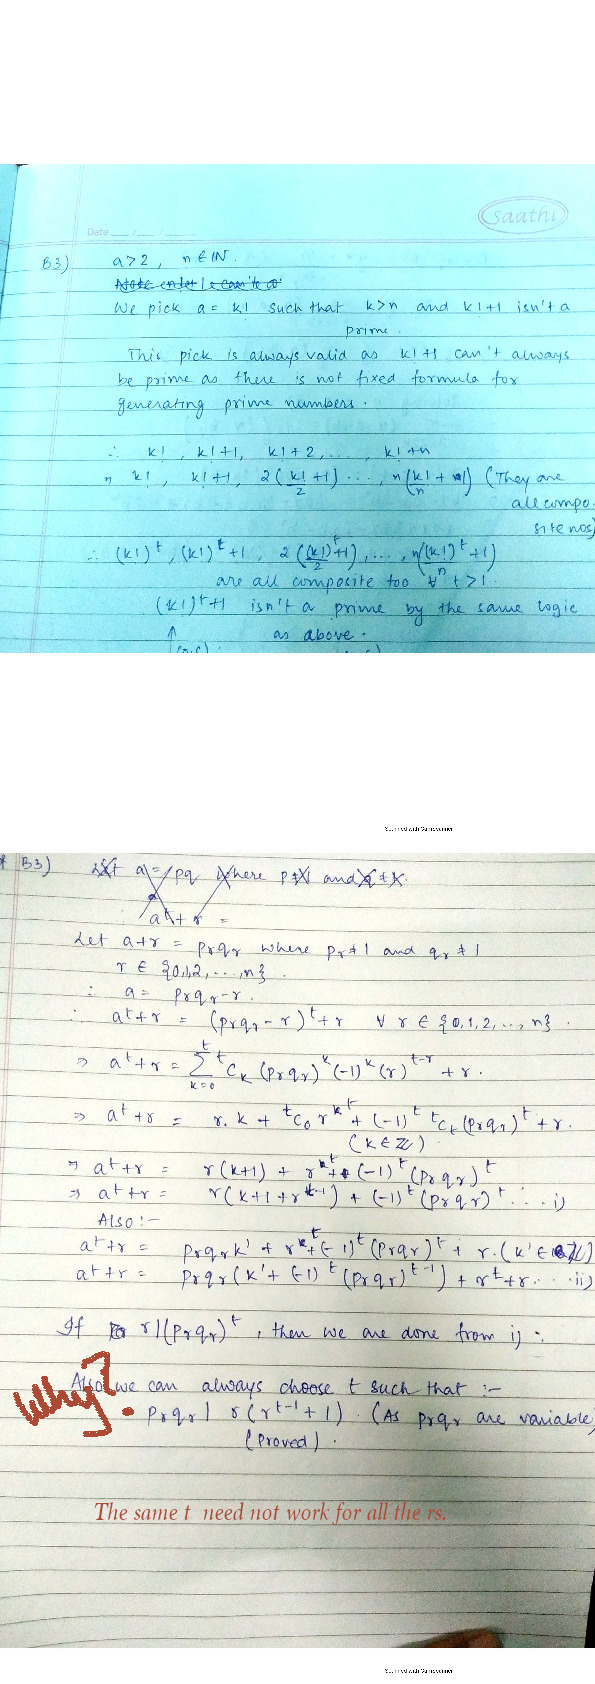 saathi
Date ___/___/___
B3) a>2, n∈IN.
We pick a = k! such that k>n and k!+1 isn't a
prime.
This pick is always valid as k!+1 can't always
be prime as there is not fixed formula for
generating prime numbers.
∴ k!, k!+1, k!+2, ..., k!+n
k!, k!+1, 2(k!/2+1) ..., n(k!/n + 1) (They are
all compo-
site nos)
∴ (k!)^t, (k!)^t+1, 2((k!)^t/2+1), ..., n((k!)^t/n+1)
are all composite too ∀ t>1.
(k!)^t+1 isn't a prime by the same logic
as above.
Scanned with CamScanner
B3) Let a = pq where p≠1 and q≠1.
a^t+r =
Let a+r = p_r q_r where p_r≠1 and q_r≠1
r ∈ {0,1,2,...,n}.
∴ a = p_r q_r - r.
∴ a^t+r = (p_r q_r - r)^t + r ∀ r ∈ {0,1,2,..,n}.
⇒ a^t+r = Σ_{k=0}^{t} ^tC_k (p_r q_r)^k (-1)^k (r)^{t-r} + r.
⇒ a^t+r = r.k + ^tC_0 r^t + (-1)^t ^tC_t (p_r q_r)^t + r.
(k∈Z).
⇒ a^t+r = r(k+1) + r^t + (-1)^t (p_r q_r)^t
⇒ a^t+r = r(k+1+r^{t-1}) + (-1)^t (p_r q_r)^t ... i)
Also :-
a^t+r = p_r q_r k' + r^t + (-1)^t (p_r q_r)^t + r. (k'∈Z)
a^t+r = p_r q_r (k' + (-1)^t (p_r q_r)^{t-1}) + r^t + r ... ii)
If r|(p_r q_r)^t, then we are done from i).
Why?
Also we can always choose t such that :-
p_r q_r | r(r^{t-1}+1). (As p_r q_r are variable)
(Proved).
The same t need not work for all the rs.
Scanned with CamScanner